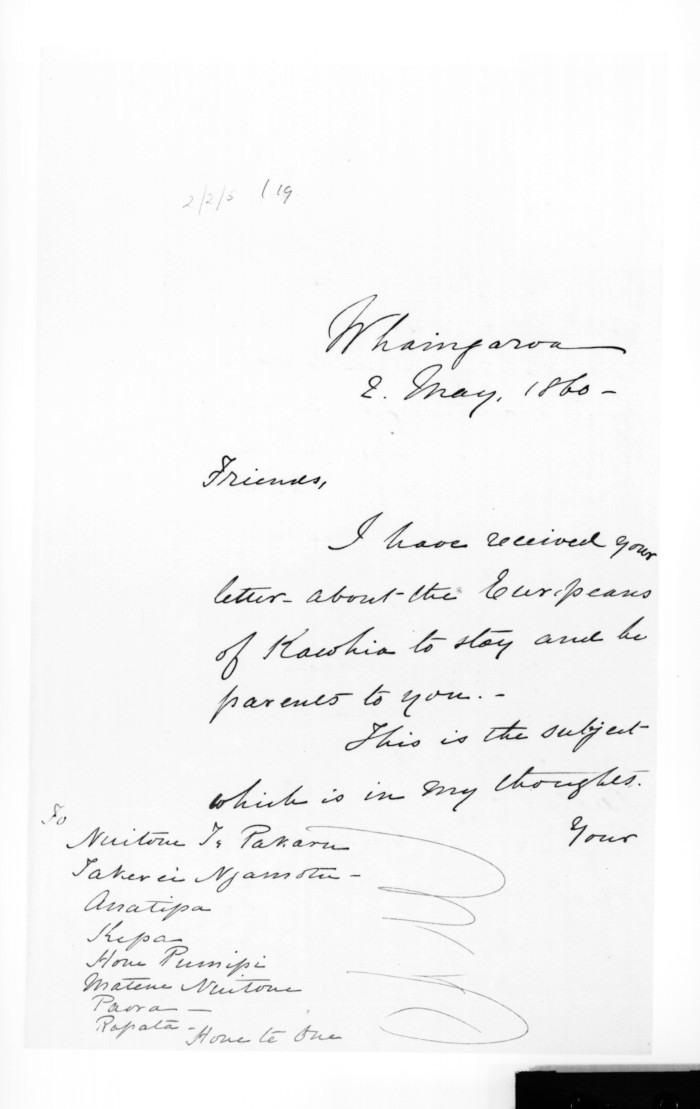 2/2/5 / 19
Whaingaroa
2. May, 1860 -
Friends,
I have received your
letter - about the Europeans
of Kawhia to stay and be
parents to you. -
This is the subject
which is in my thoughts.
Your
To
Nuitone Te Pakaru
Takerei Ngamotu -
Anatipa
Kepa
Hone Pumipi
Matene Nuitone
Paora -
Rapata -
Hone te One